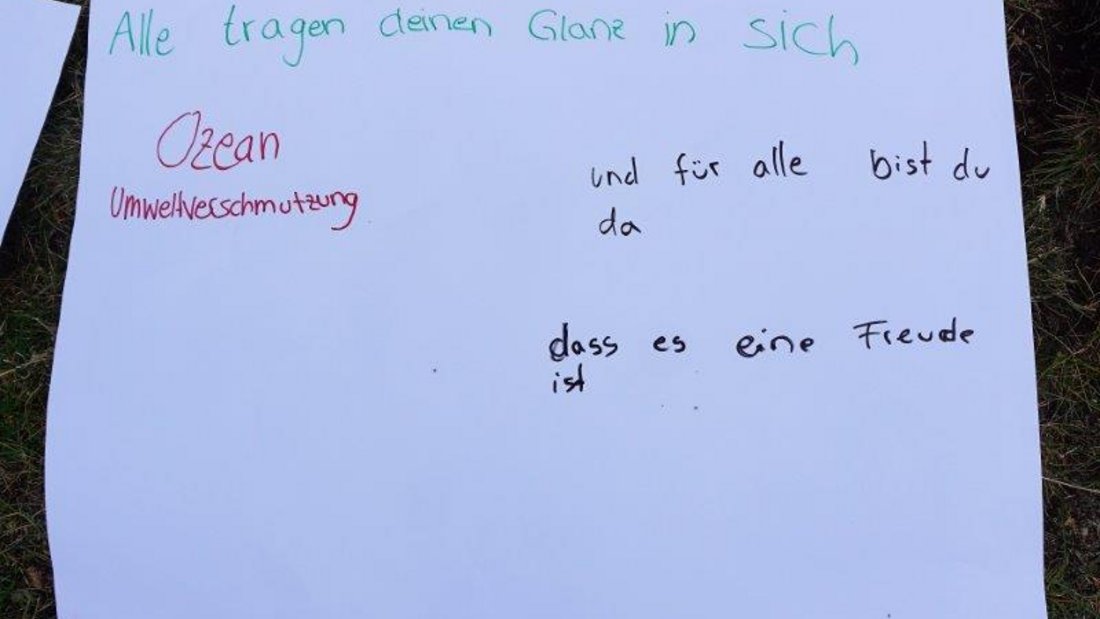 Alle tragen deinen Glanz in sich
Ozean
Umweltverschmutzung
und für alle bist du
da
dass es eine Freude
ist